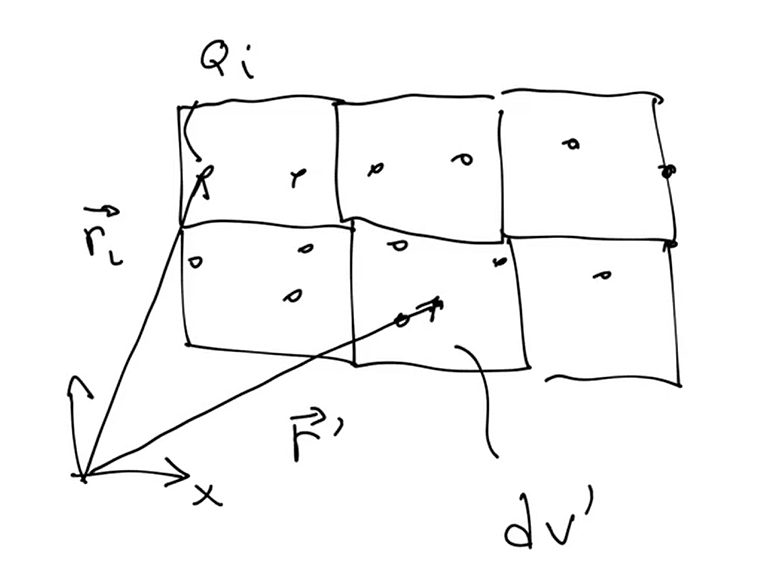 Qi
r⃗ᵢ
r⃗'
x
dv'